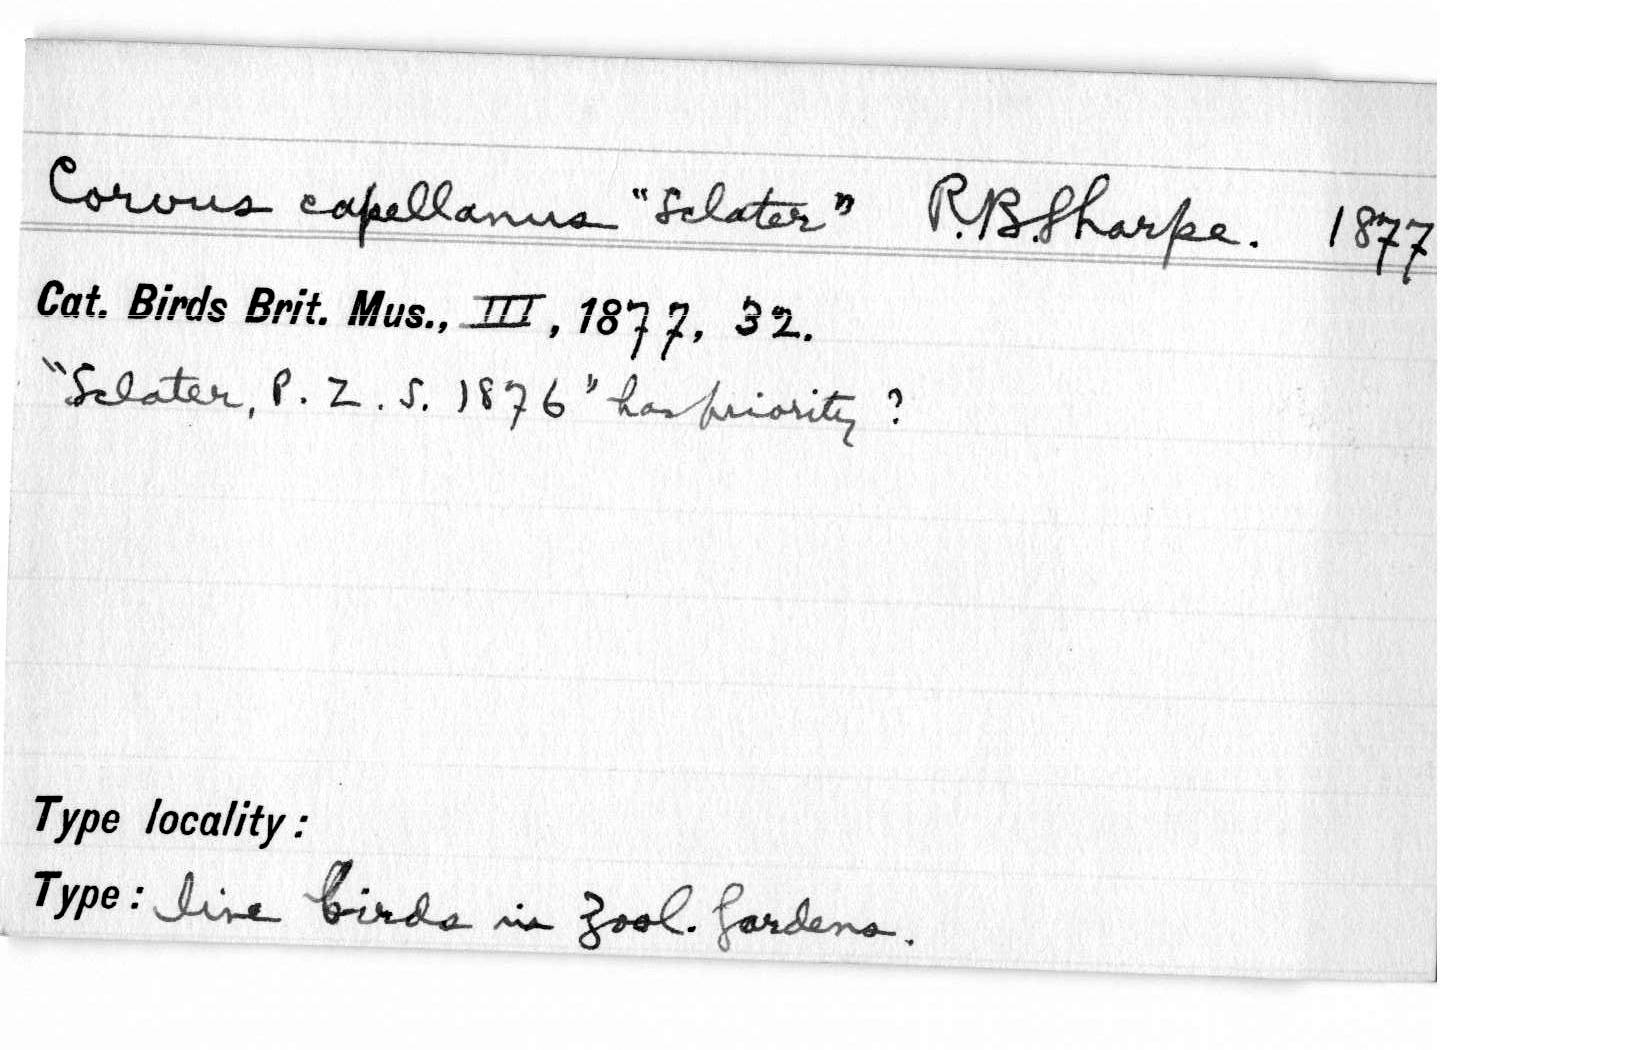 Corvus capellanus "Sclater" R.B.Sharpe. 1877
Cat. Birds Brit. Mus., III, 1877, 32.
"Sclater, P. Z. S. 1876" has priority ?
Type locality:
Type: live birds in Zool. Gardens.